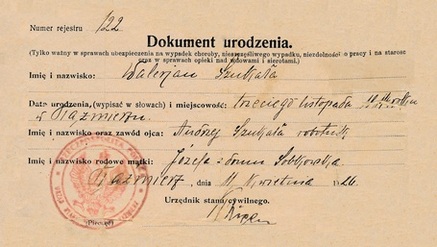 Numer rejestru 122
Dokument urodzenia.
(Tylko ważny w sprawach ubezpieczenia na wypadek choroby, nieszczęśliwego wypadku, niezdolności do pracy i na starość
oraz w sprawach opieki nad wdowami i sierotami.)
Imię i nazwisko: Walerjan Szukała
Data urodzenia, (wypisać w słowach) i miejscowość: trzeciego listopada
w Kaźmierzu.
Imię i nazwisko oraz zawód ojca: Andrzej Szukała robotnik
Imię i nazwisko rodowe matki: Józefa z domu
Kaźmierz, dnia 11 kwietnia 1926.
Urzędnik stanu cywilnego.
(Pieczęć)